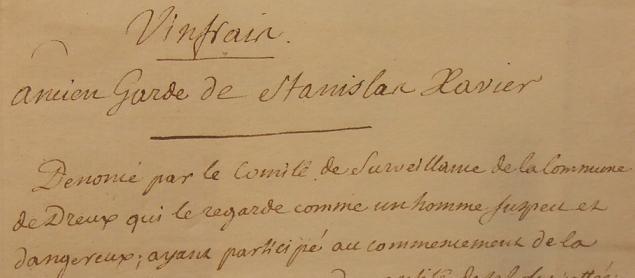 Vinfrain.
ancien Garde de Stanislas Xavier
Denoncé par le Comité de Surveillance de la Commune
de Dreux qui le regarde comme un homme suspect et
dangereux; ayant participé au commencement de la